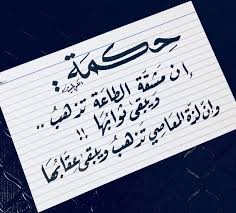 حِكمَة :
إن مَشقّة الطاعة تذهبُ ..
وَيبقى ثوابُها !!
وانّ لذة المعاصي تذهبُ ويبقى عِقابُها